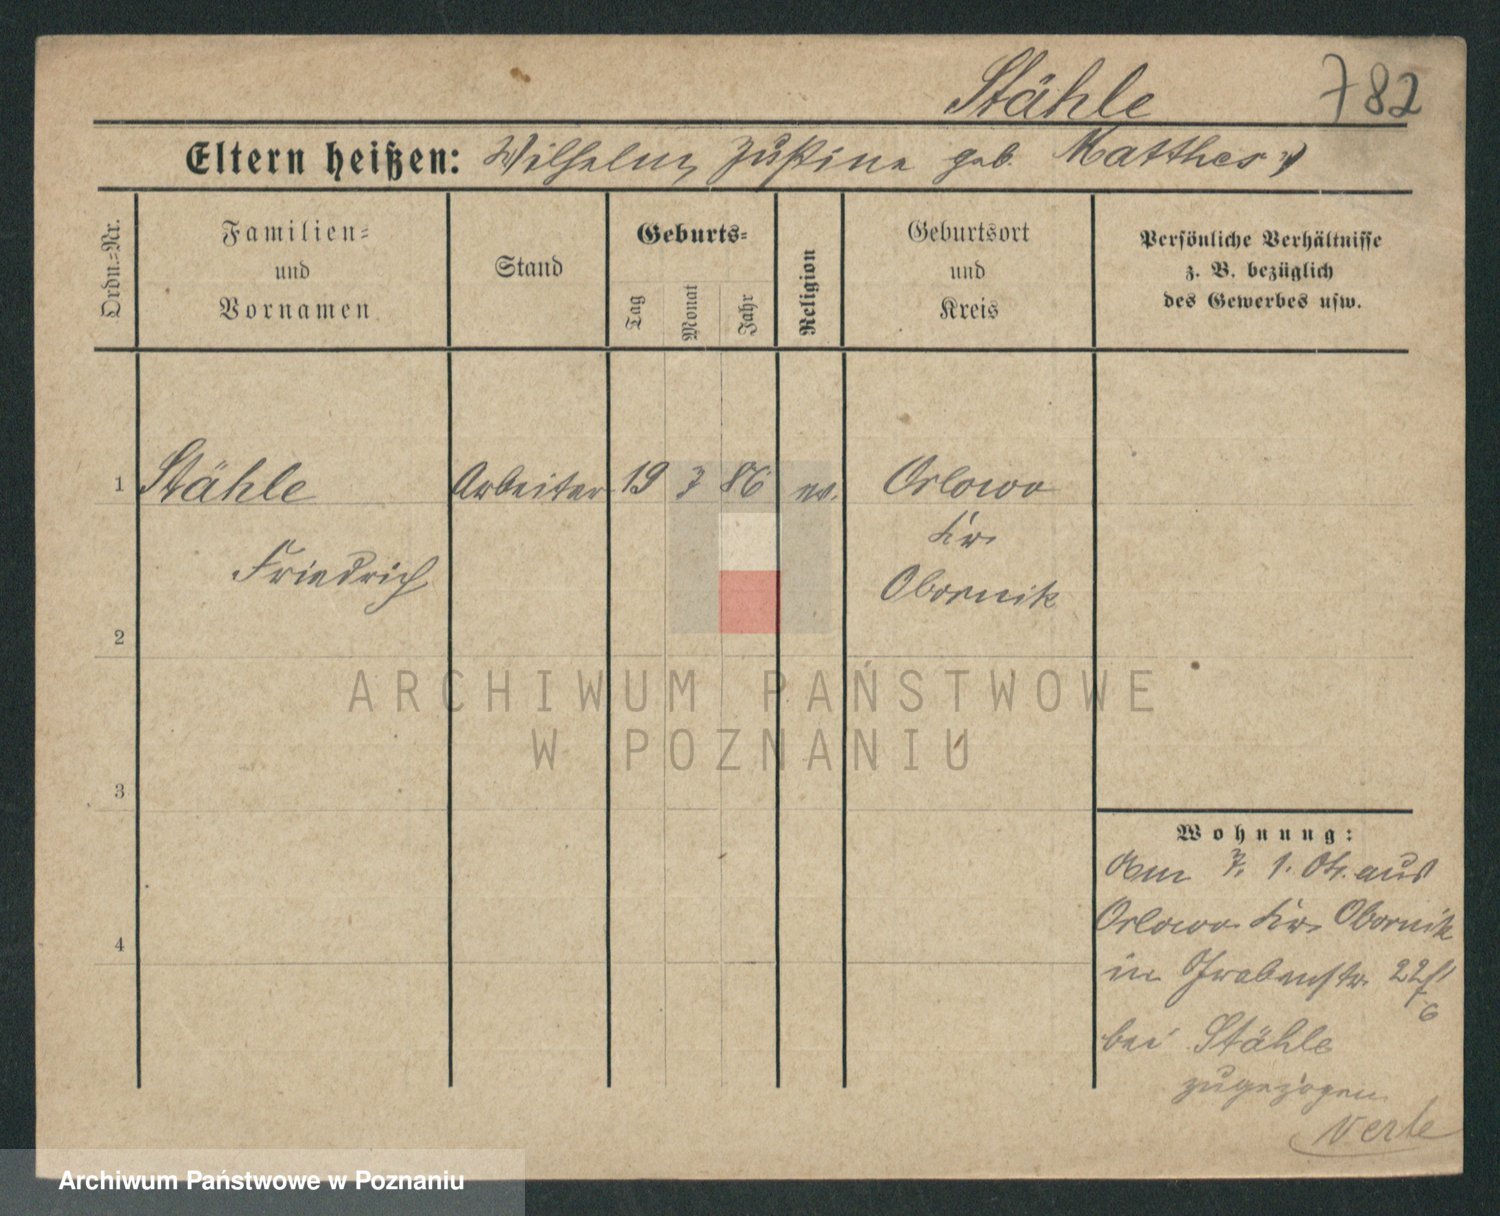 Stähle 782
Eltern heißen: Wilhelm, Justine geb. Matthes
Ordn.=Nr.
Familien=
und
Vornamen
Stand
Geburts=
Tag
Monat
Jahr
Religion
Geburtsort
und
Kreis
Persönliche Verhältnisse
z. B. bezüglich
des Gewerbes usw.
1 Stähle Arbeiter 19 7 86 ev. Orlowo
Kr.
Friedrich Obornik
2
3
4
ARCHIWUM PAŃSTWOWE
W POZNANIU
Wohnung:
Am 7. 1. aus
Orlowo Kr. Obornik
in Grabenstr. 22
bei Stähle
zugezogen
Archiwum Państwowe w Poznaniu